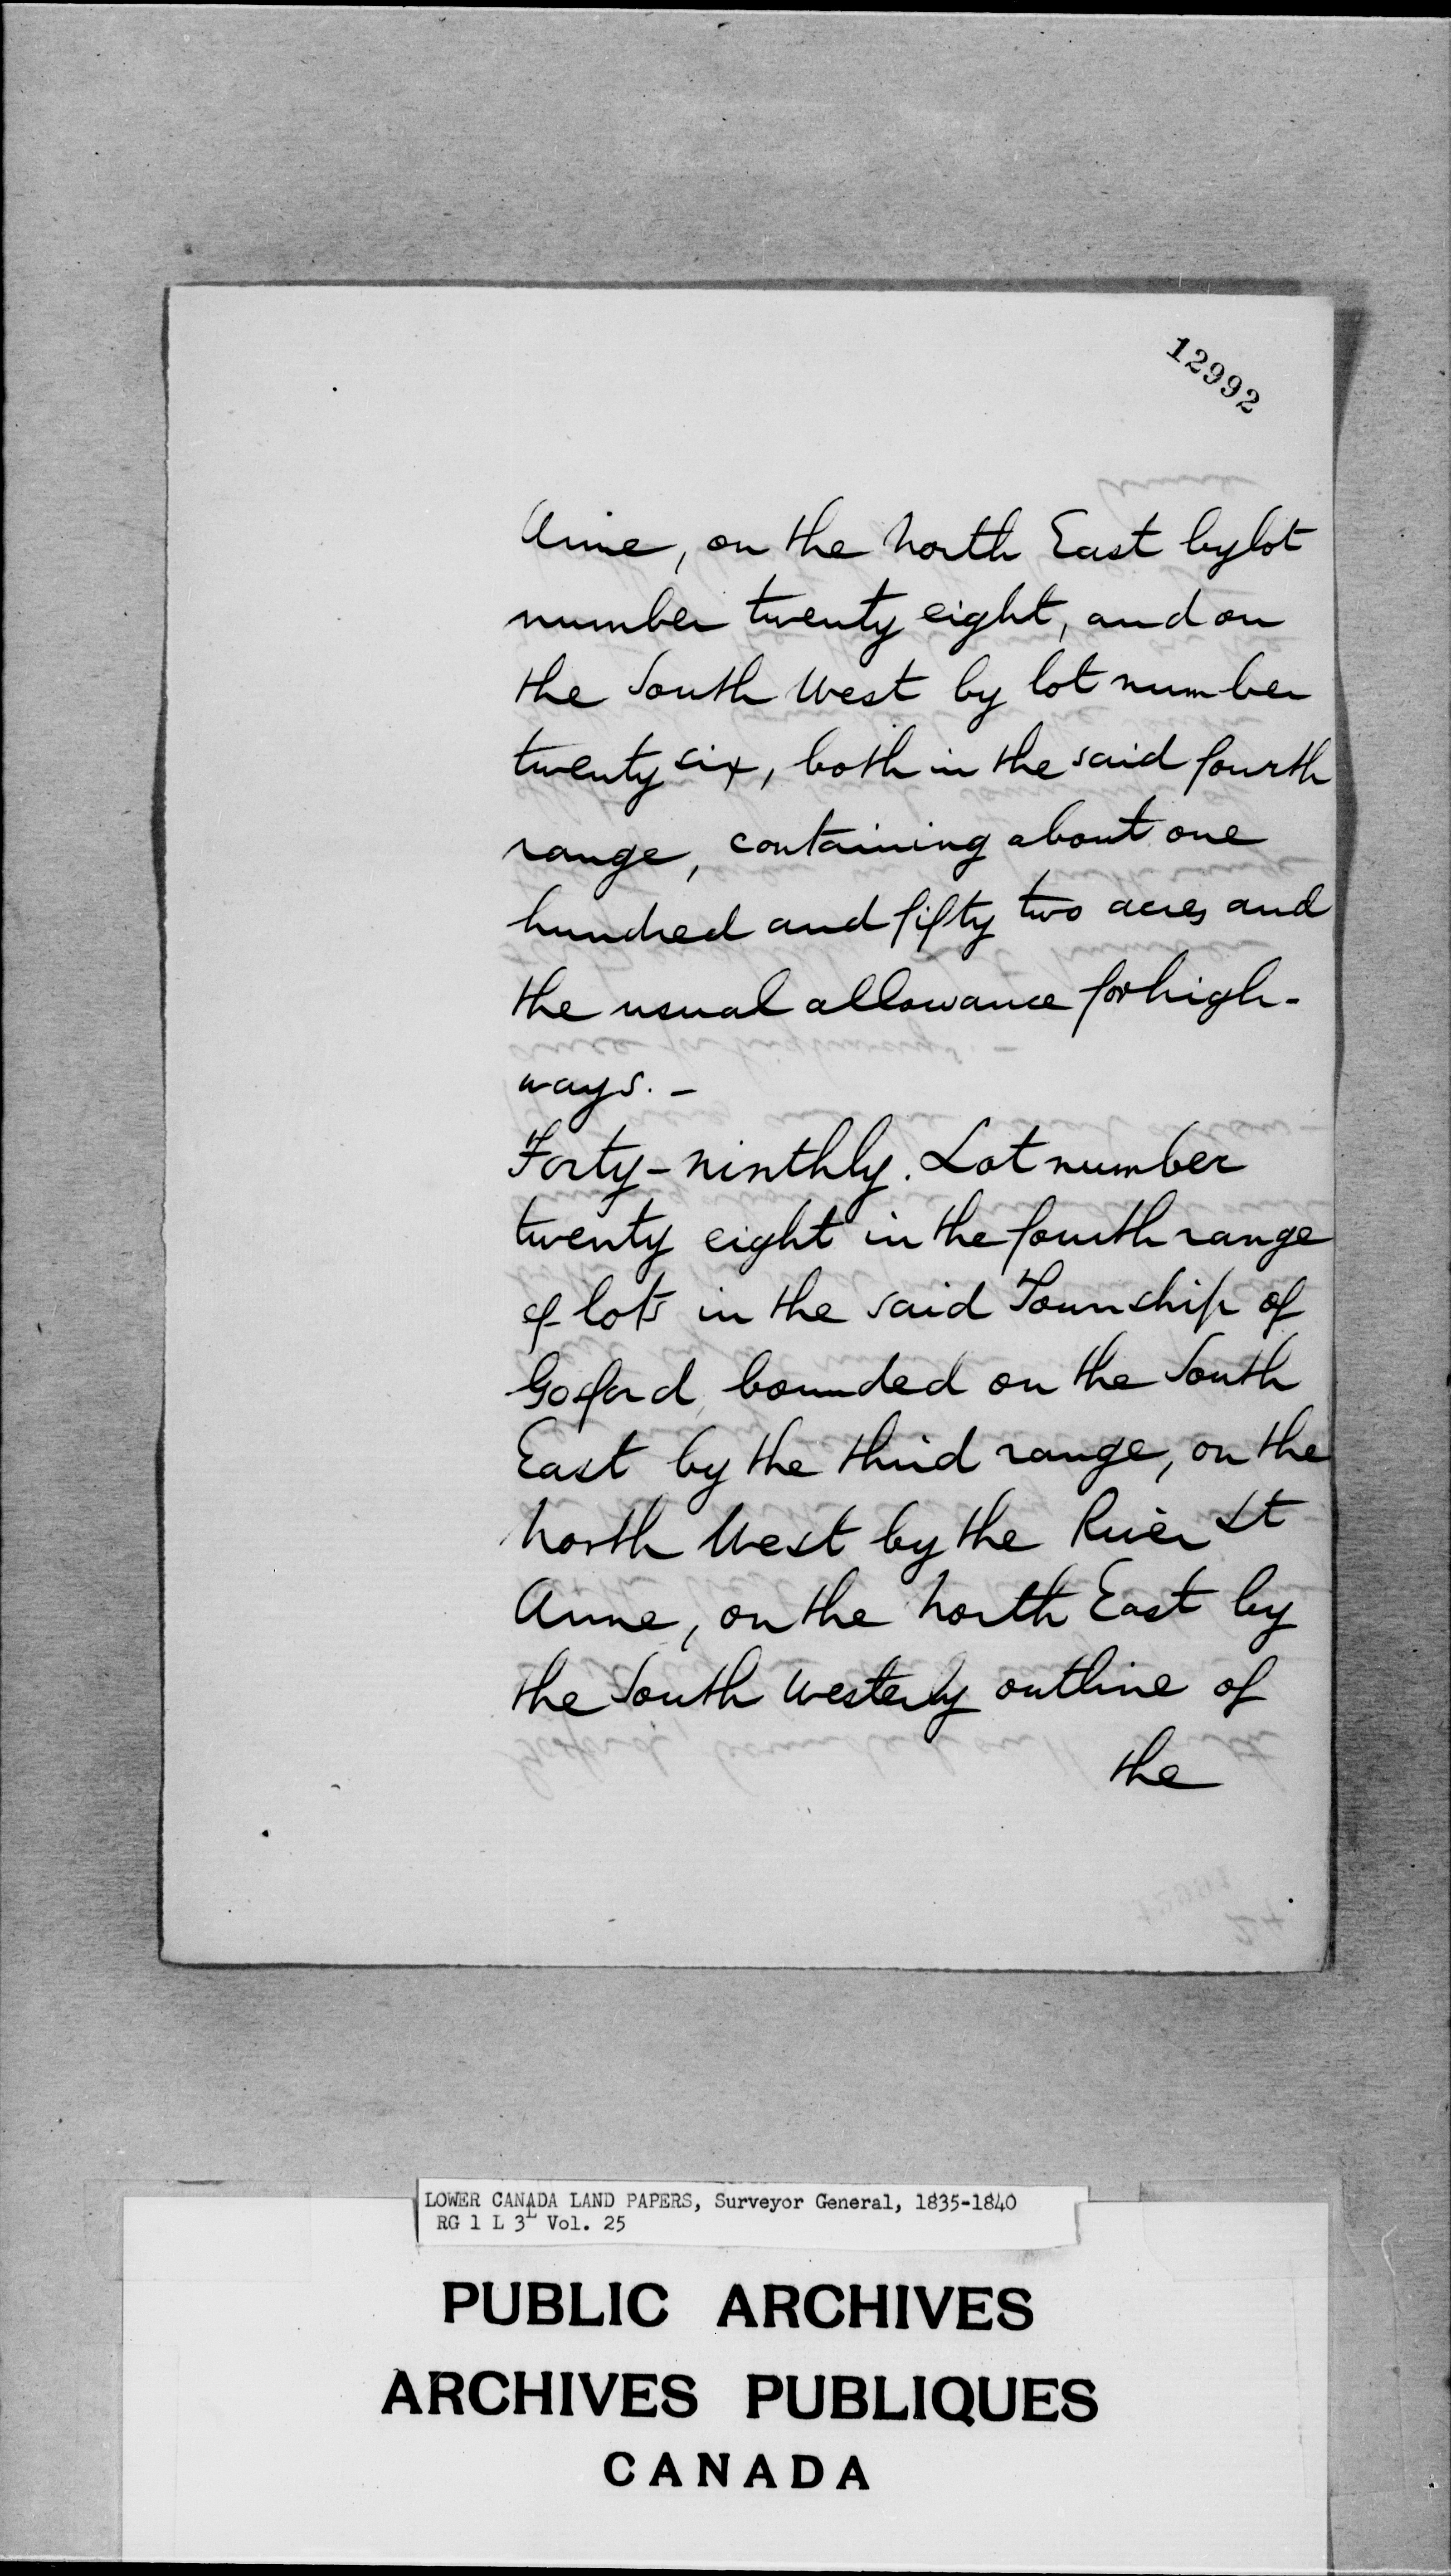 12992
Anne, on the North East by lot
number twenty eight, and on
the South West by lot number
twenty six, both in the said fourth
range, containing about one
hundred and fifty two acres and
the usual allowance for high-
ways. -
Forty-ninthly. Lot number
twenty eight in the fourth range
of lots in the said Township of
Gosford, bounded on the South
East by the third range, on the
North West by the River St
Anne, on the North East by
the South Westerly outline of
the
LOWER CANADA LAND PAPERS, Surveyor General, 1835-1840
RG 1 L 3L Vol. 25
PUBLIC ARCHIVES
ARCHIVES PUBLIQUES
CANADA